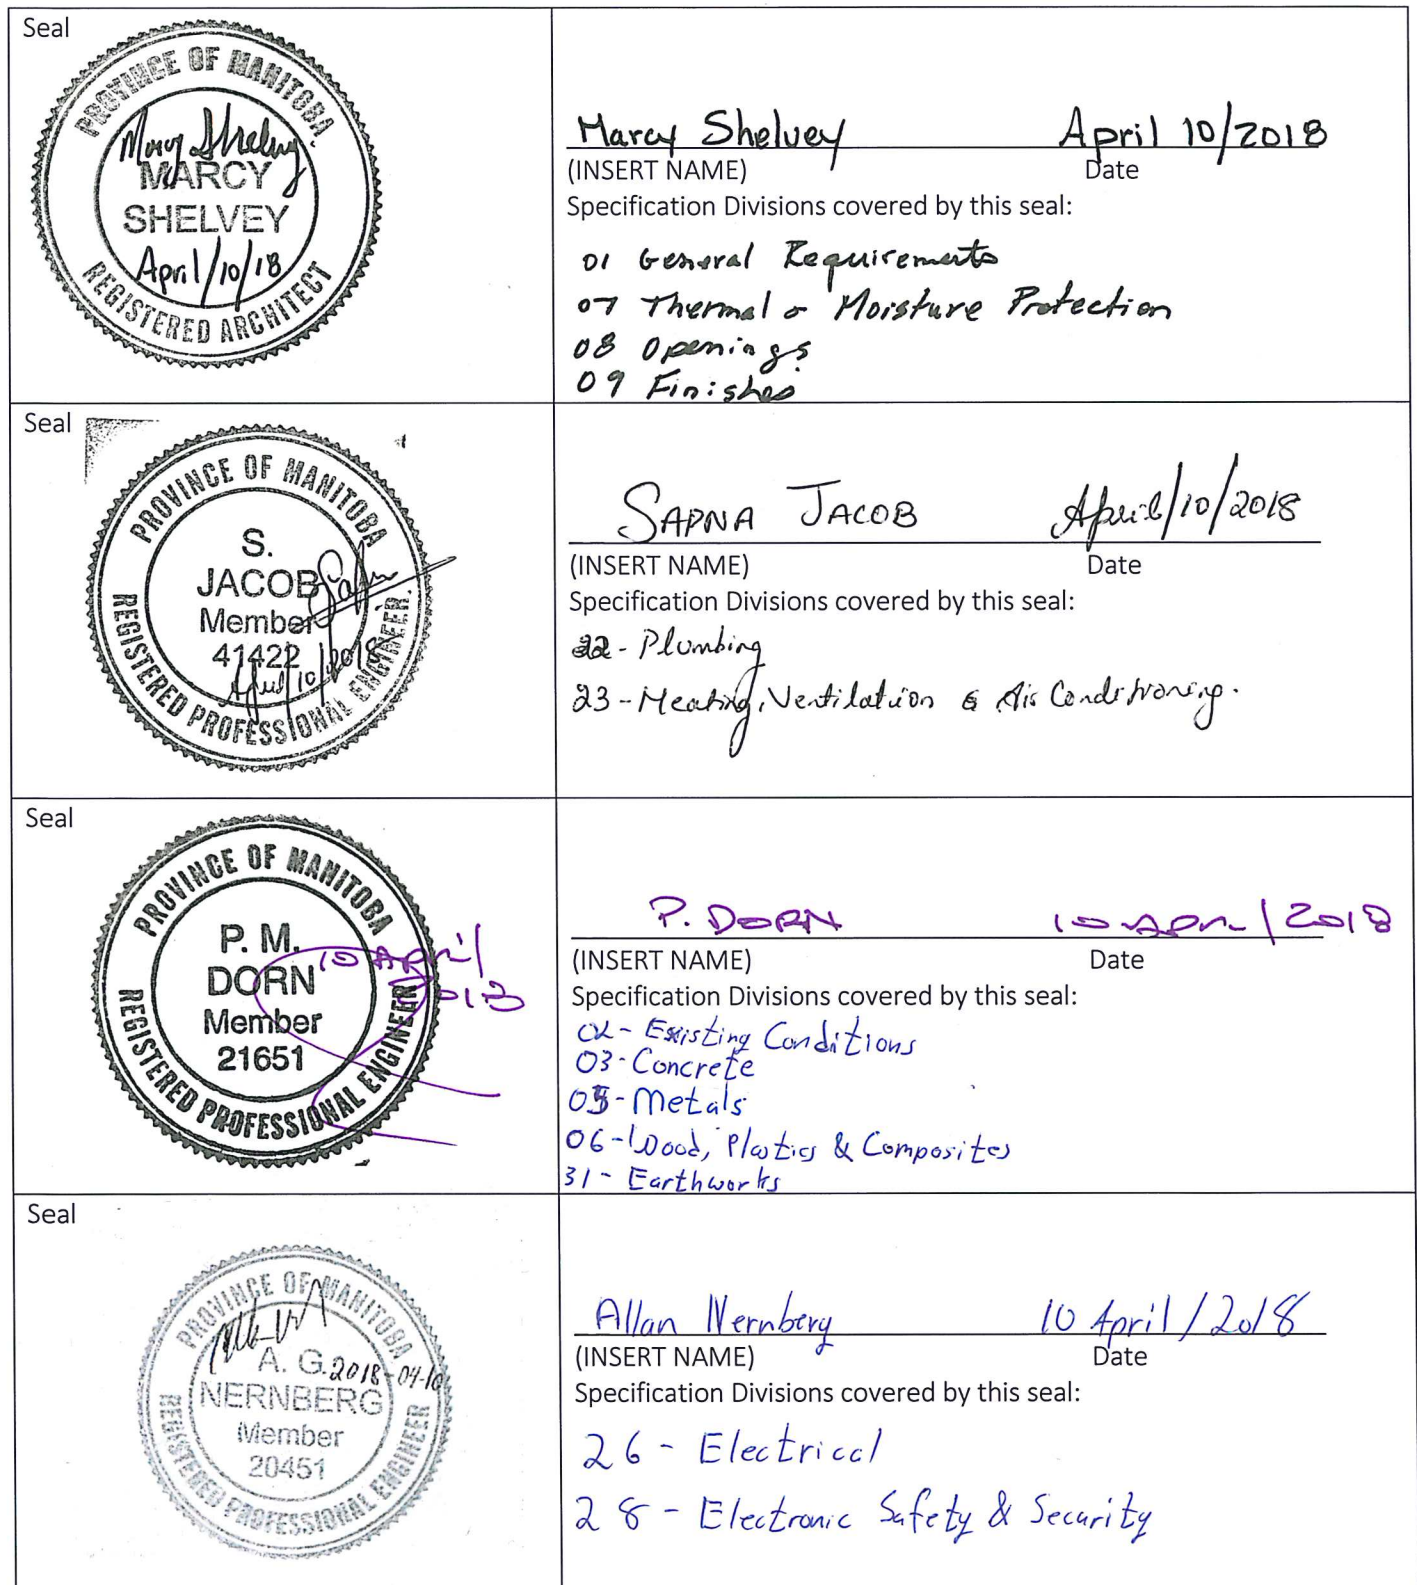 Seal
PROVINCE OF MANITOBA
Marcy Shelvey
MARCY
SHELVEY
April/10/18
REGISTERED ARCHITECT
Marcy Shelvey April 10/2018
(INSERT NAME) Date
Specification Divisions covered by this seal:
01 General Requirements
07 Thermal & Moisture Protection
08 Openings
09 Finishes
Seal
PROVINCE OF MANITOBA
S.
JACOB
Member
41422
April/10/2018
REGISTERED PROFESSIONAL ENGINEER
SAPNA JACOB April/10/2018
(INSERT NAME) Date
Specification Divisions covered by this seal:
22 - Plumbing
23 - Heating, Ventilation & Air Conditioning.
Seal
PROVINCE OF MANITOBA
P. M.
DORN
Member
21651
10 April
2018
REGISTERED PROFESSIONAL ENGINEER
P. DORN 10 April 2018
(INSERT NAME) Date
Specification Divisions covered by this seal:
02 - Existing Conditions
03 - Concrete
05 - Metals
06 - Wood, Plastics & Composites
31 - Earthworks
Seal
PROVINCE OF MANITOBA
A. G.
2018-04-10
NERNBERG
Member
20451
REGISTERED PROFESSIONAL ENGINEER
Allan Nernberg 10 April/2018
(INSERT NAME) Date
Specification Divisions covered by this seal:
26 - Electrical
28 - Electronic Safety & Security